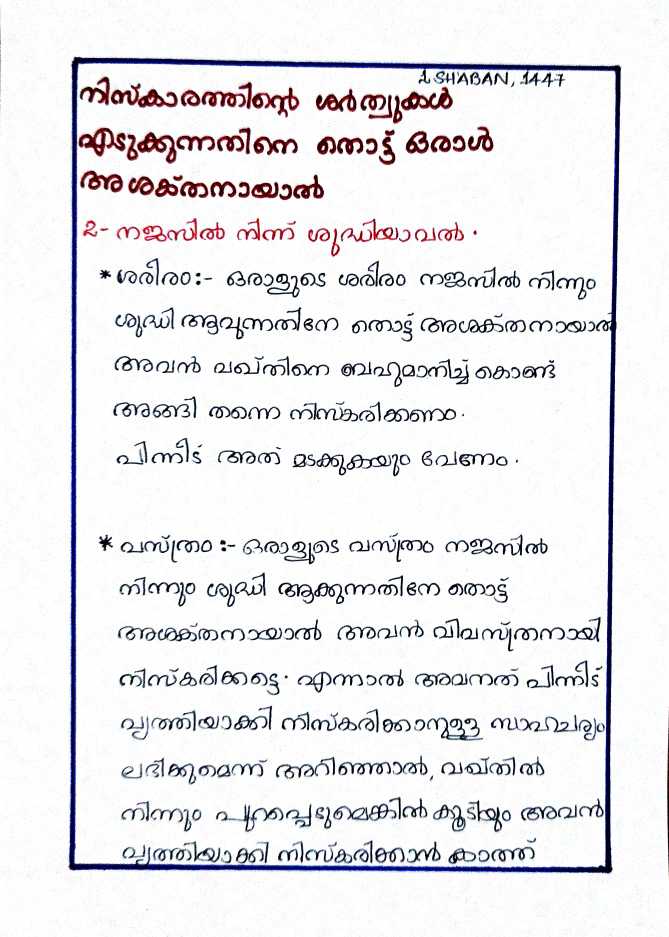 1 SHABAN, 1447
നിസ്കാരത്തിന്റെ ശർത്വുകൾ
എടുക്കുന്നതിനെ തൊട്ട് ഒരാൾ
അശക്തനായാൽ
2- നജസിൽ നിന്ന് ശുദ്ധിയാവൽ.
* ശരീരം:- ഒരാളുടെ ശരീരം നജസിൽ നിന്നും
ശുദ്ധി ആവുന്നതിനേ തൊട്ട് അശക്തനായാൽ
അവൻ വഖ്തിനെ ബഹുമാനിച്ച് കൊണ്ട്
അങ്ങി തന്നെ നിസ്കരിക്കണം.
പിന്നീട് അത് മടക്കുകയും വേണം.
* വസ്ത്രം :- ഒരാളുടെ വസ്ത്രം നജസിൽ
നിന്നും ശുദ്ധി ആക്കുന്നതിനേ തൊട്ട്
അശക്തനായാൽ അവൻ വിവസ്ത്രനായി
നിസ്കരിക്കട്ടെ. എന്നാൽ അവനത് പിന്നീട്
വൃത്തിയാക്കി നിസ്കരിക്കാനുള്ള സാഹചര്യം
ലഭിക്കുമെന്ന് അറിഞ്ഞാൽ, വഖ്തിൽ
നിന്നും പുറപ്പെടുമെങ്കിൽ കൂടിയും അവൻ
വൃത്തിയാക്കി നിസ്കരിക്കാൻ കാത്ത്